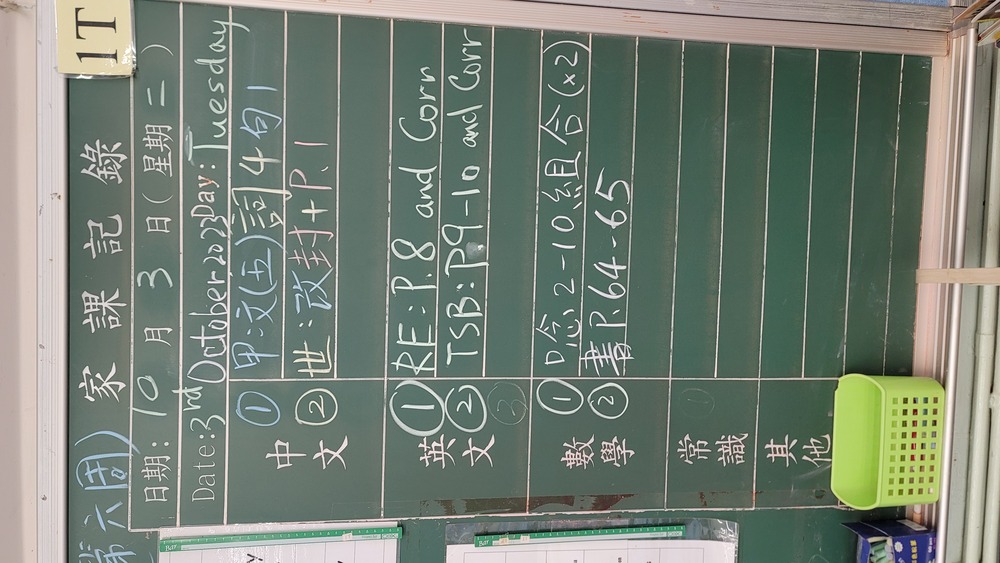 1T
(第六周)
家課記錄
日期: 10 月 3 日(星期二)
Date: 3rd October 2023 Day: Tuesday
中文
① 甲:文(五)詞4句1
② 世:改封+P.1
英文
① RE: P.8 and Corr
② TSB: P9-10 and Corr
③
數學
① 唸2-10組合(×2)
② 書P.64-65
常識
①
其他